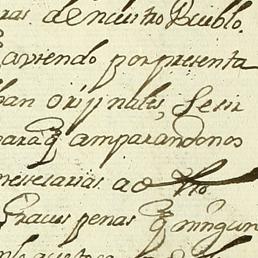 ras de nuestro Pueblo.
aviendo por presenta
ban originales, Se sir
para q amparandonos
nesesarias a d̶ ̶
Graves penas q ningun